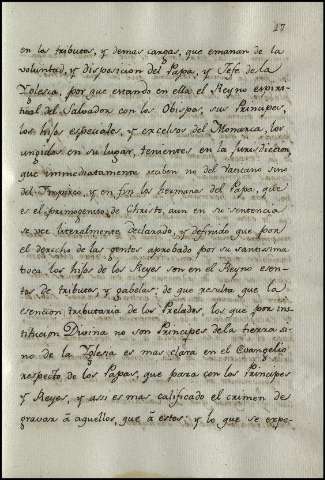 17
en los tributos, y demas cargas, que emanan de la
voluntad, y disposicion del Papa, y Jefe de la
Yglesia, por que estando en ella el Reyno espiri-
tual del Salvador con los Obispos, sus Principes,
los hijos especiales, y excelsos del Monarca, los
ungidos en su lugar, tenientes en la jurisdiccion
que immediatamente reciben no del Vaticano sino
del Impireo, y en fin los hermanos del Papa, que
es el primogenito de Christo, aun en su sentencia
se vee literalmente declarado, y definido que por
el derecho de las gentes aprobado por su santisima
boca, los hijos de los Reyes son en el Reyno esen-
tos de tributos, y gabelas; de que resulta que la
esencion tributaria de los Prelados, los que por ins-
titucion Divina no son Principes de la tierra si-
no de la Yglesia es mas clara en el Evangelio
respecto de los Papas, que para con los Principes
y Reyes, y assi es mas calificado el crimen de
gravar á aquellos, que á estos: y lo que se expe-